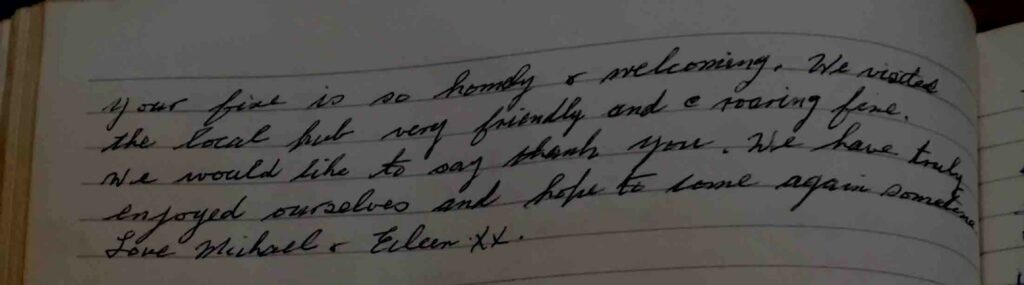 your fire is so homely & welcoming. We visited
the local pub very friendly and c roaring fire.
We would like to say thank you. We have truly
enjoyed ourselves and hope to come again sometime
Love Michael & Eileen XX.